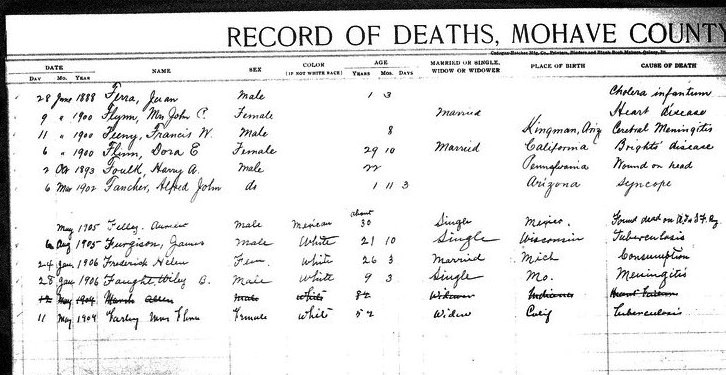 RECORD OF DEATHS, MOHAVE COUNTY
DATE NAME SEX COLOR AGE MARRIED OR SINGLE, PLACE OF BIRTH CAUSE OF DEATH
DAY Mo. YEAR (IF NOT WHITE RACE) YEARS Mos. DAYS WIDOW OR WIDOWER
28 June 1888 Ferra, Juan Male 1 3 Cholera infantum
9 " 1900 Flynn, Mrs John P. Female Married Heart disease
11 " 1900 Feeny, Francis W. Male 8 Kingman, Ariz Cerebral Meningitis
6 " 1900 Flinn, Dora E Female 29 10 Married California Brights disease
2 Oct 1893 Foulk, Harry A. Male 22 Pennsylvania Wound on head
6 Mar 1902 Fancher, Alfred John do 1 11 3 Arizona Syncope
about
May 1905 Male Mexican 30 Single Mexico. Found dead on
6 Aug 1905 Furgison, James Male White 21 10 Single Wisconsin Tuberculosis
24 Jan 1906 Frederick Helen Fem. White 26 3 Married Mich Consumption
28 Jan 1906 Faught, Wiley B. Male White 9 3 Single Mo. Meningitis
12 May 1904 Male White 82 Widower Indiana
11 May 1904 Farley Mrs Female White 52 Widow Calif Tuberculosis